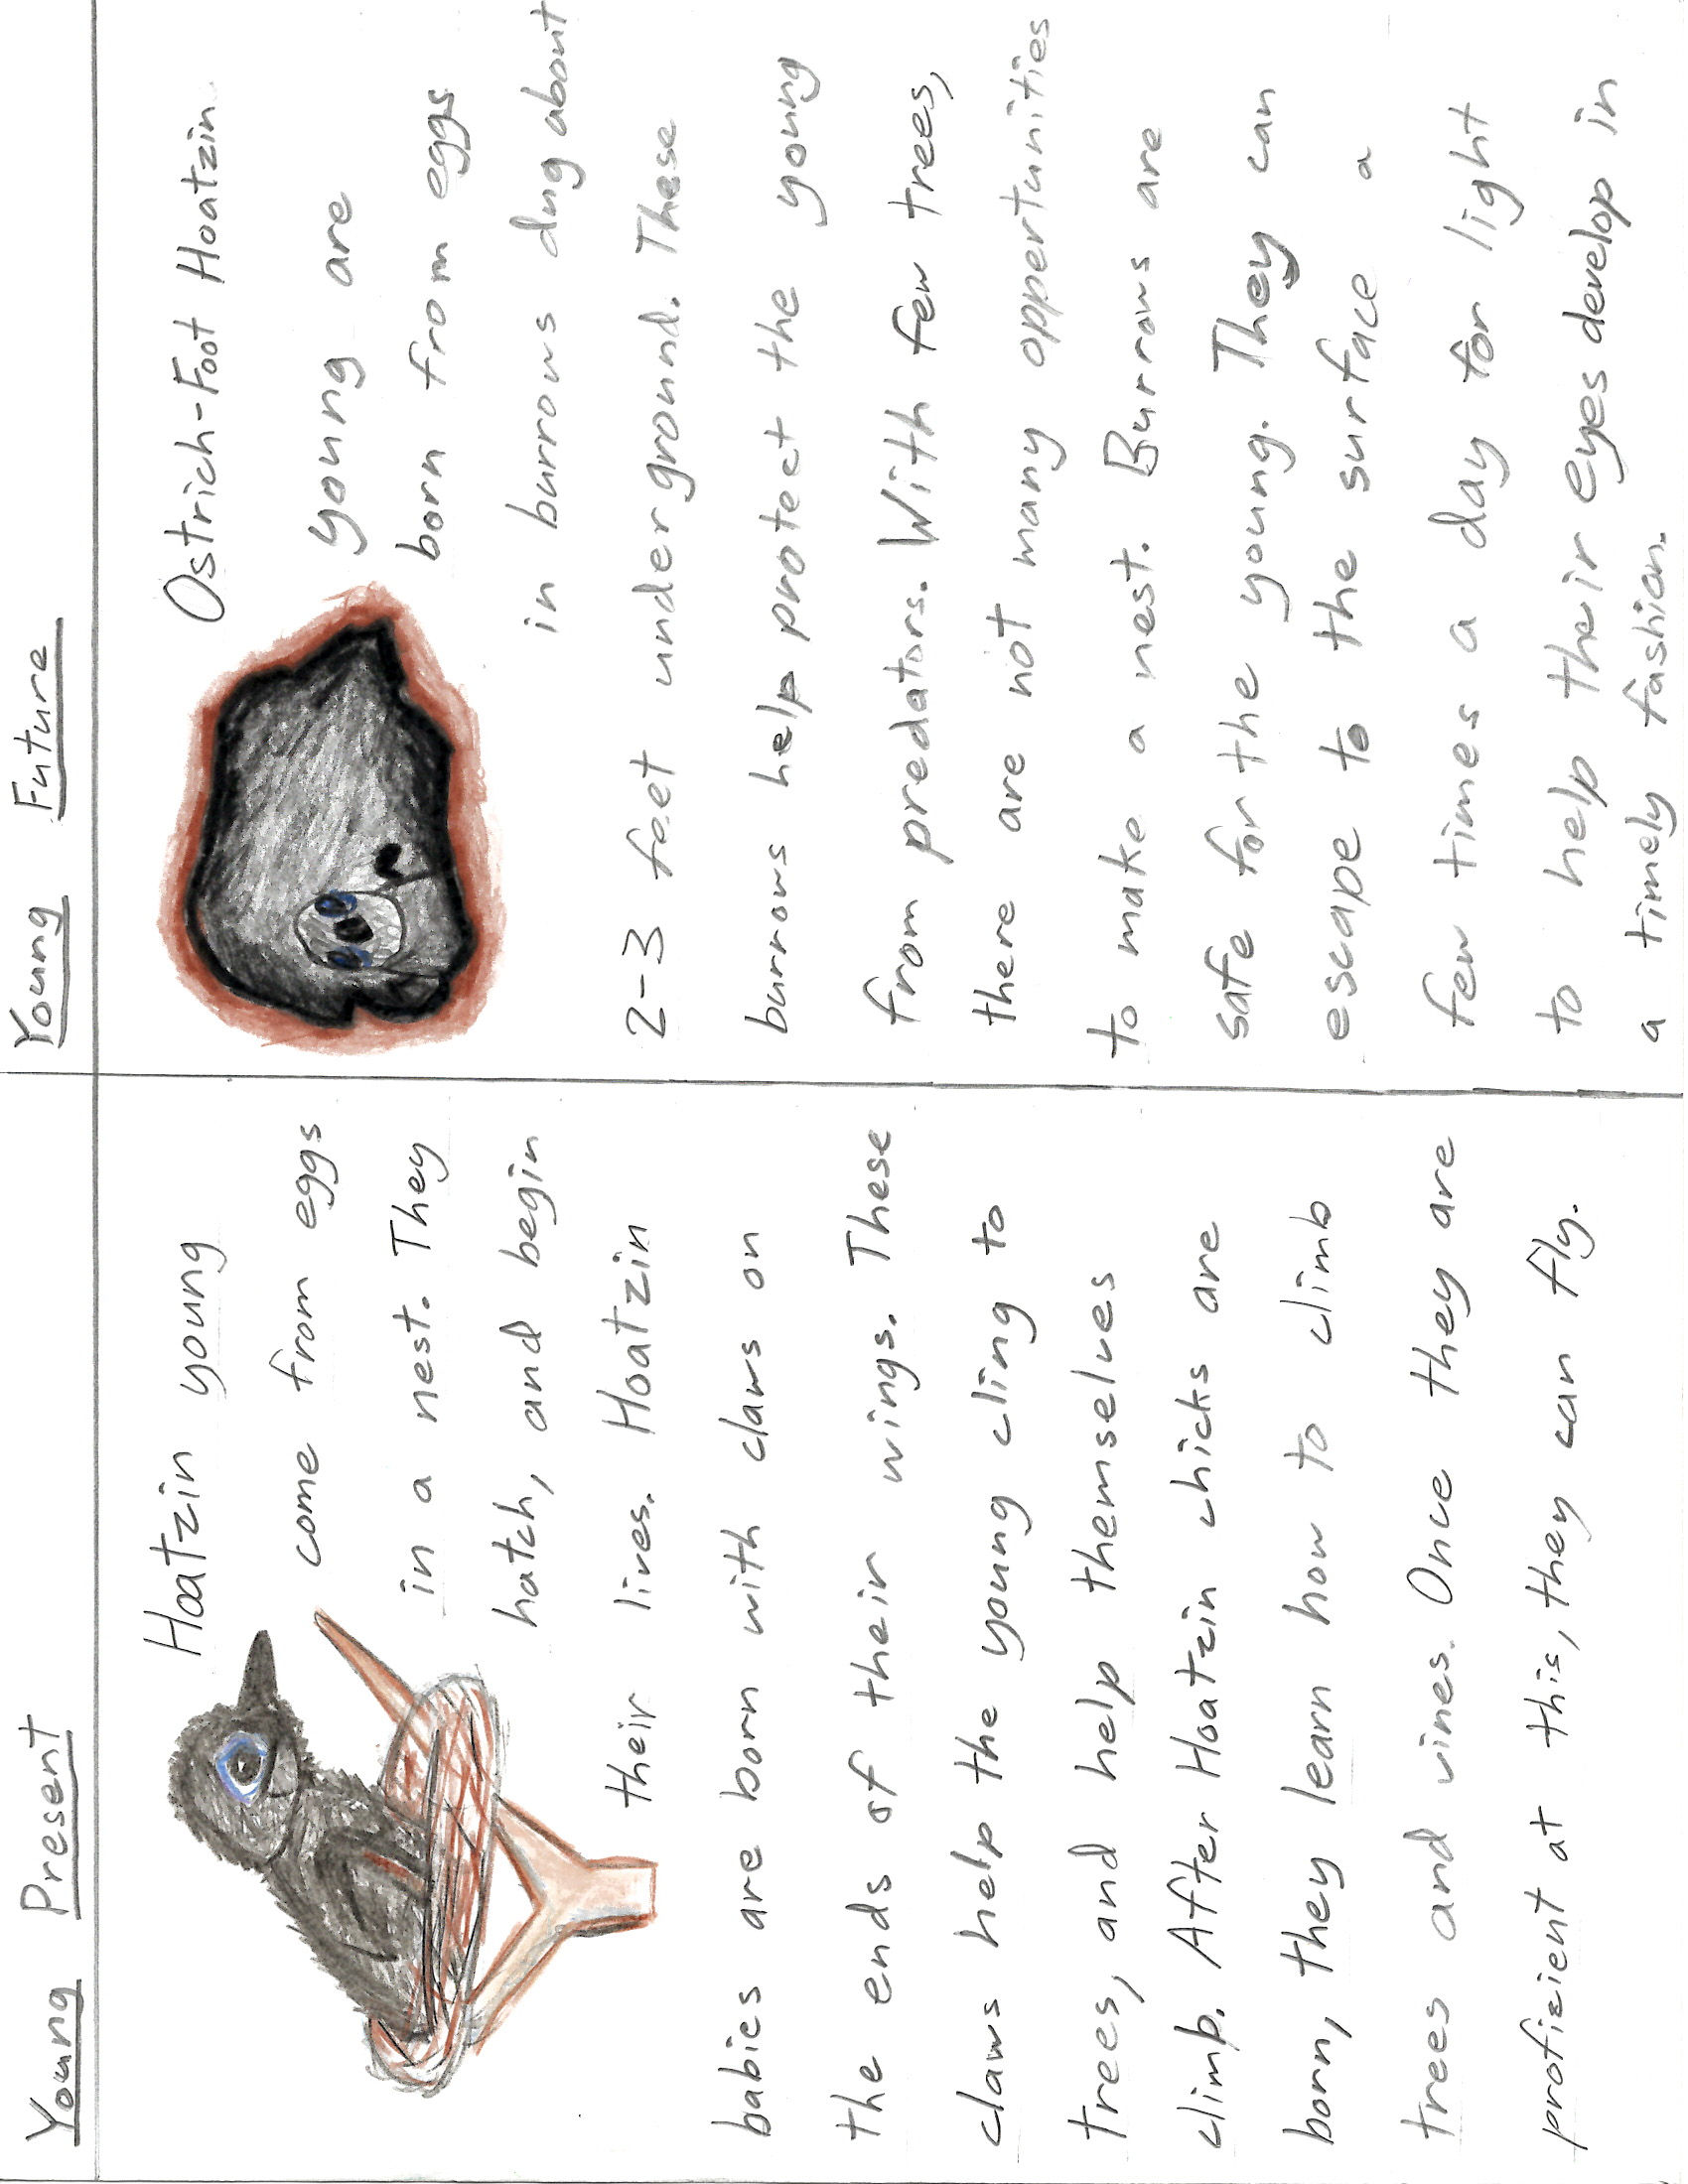 Young Present
Hoatzin young
come from eggs
in a nest. They
hatch, and begin
their lives. Hoatzin
babies are born with claws on
the ends of their wings. These
claws help the young cling to
trees, and help themselves
climb. After Hoatzin chicks are
born, they learn how to climb
trees and vines. Once they are
profizient at this, they can fly.
Young Future
Ostrich-Foot Hoatzin
young are
born from eggs
in burrows dug about
2-3 feet underground. These
burrows help protect the young
from predators. With few trees,
there are not many oppertunities
to make a nest. Burrows are
safe for the young. They can
escape to the surface a
few times a day for light
to help their eyes develop in
a timely fashion.